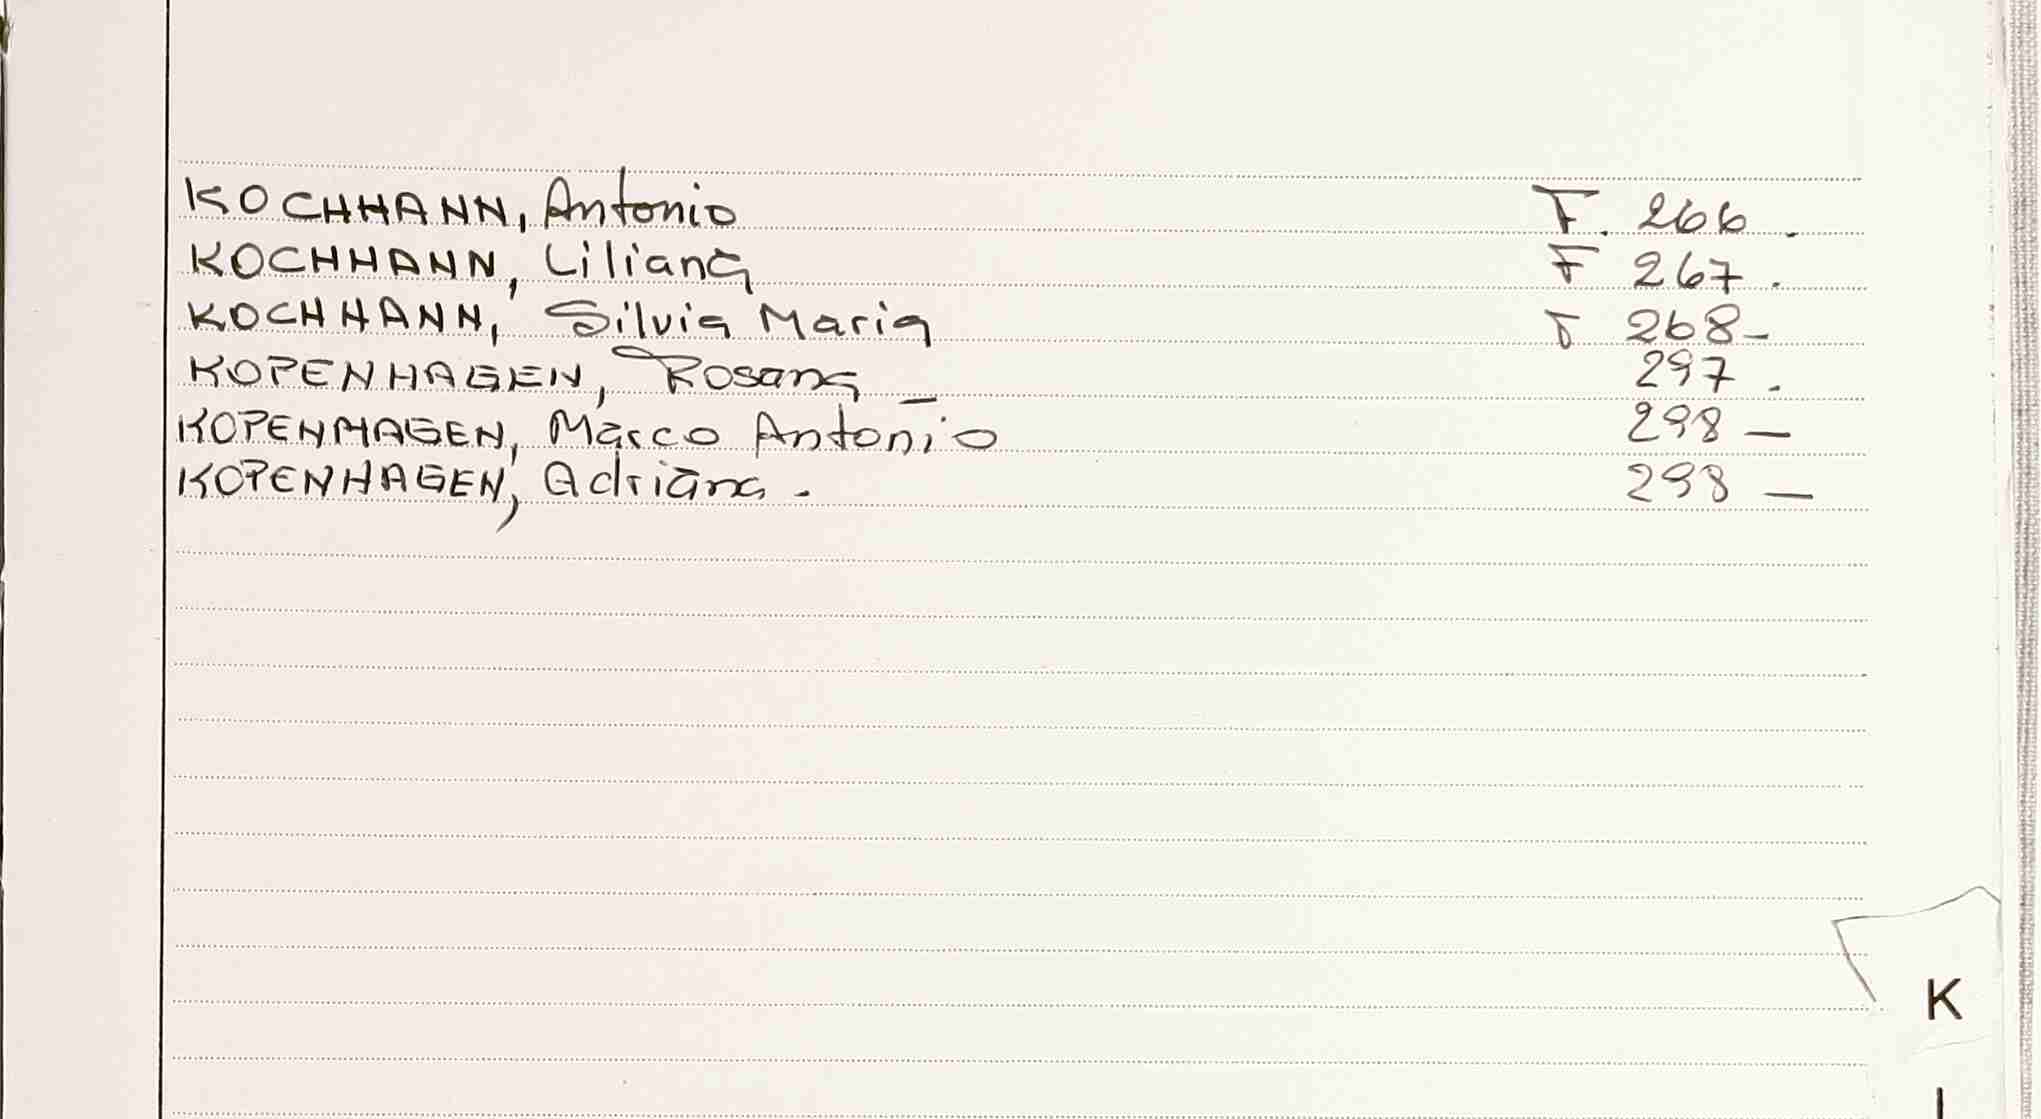 KOCHHANN, Antonio F. 266.
KOCHHANN, Liliana F 267.
KOCHHANN, Silvia Maria F 268-
KOPENHAGEN, Rosana _ 297.
KOPENHAGEN, Marco Antonio 298-
KOPENHAGEN, Adriana. 298-
K